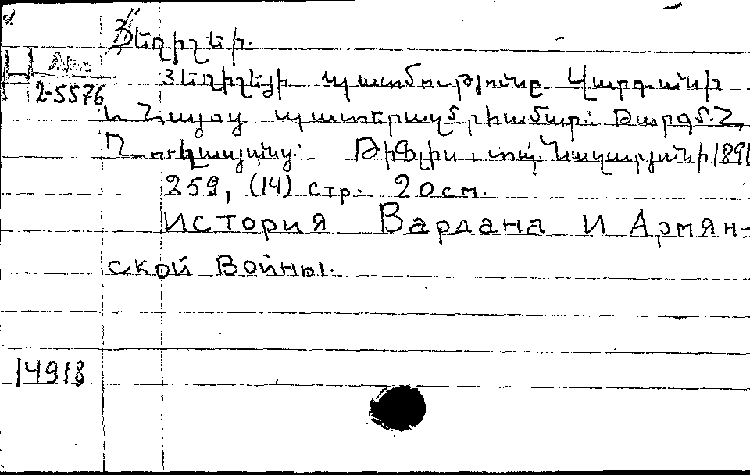 Յեղիշեի.
Н Арм
2-5576
Յեղիշեյի պատմութիւնը Վարդանի
և Հայոց պատերազմի համար: Թարգմ.
Թիֆլիս տպ. 1891
259, (14) стр. 20 см.
История Вардана и Армян-
ской Войны.
14918